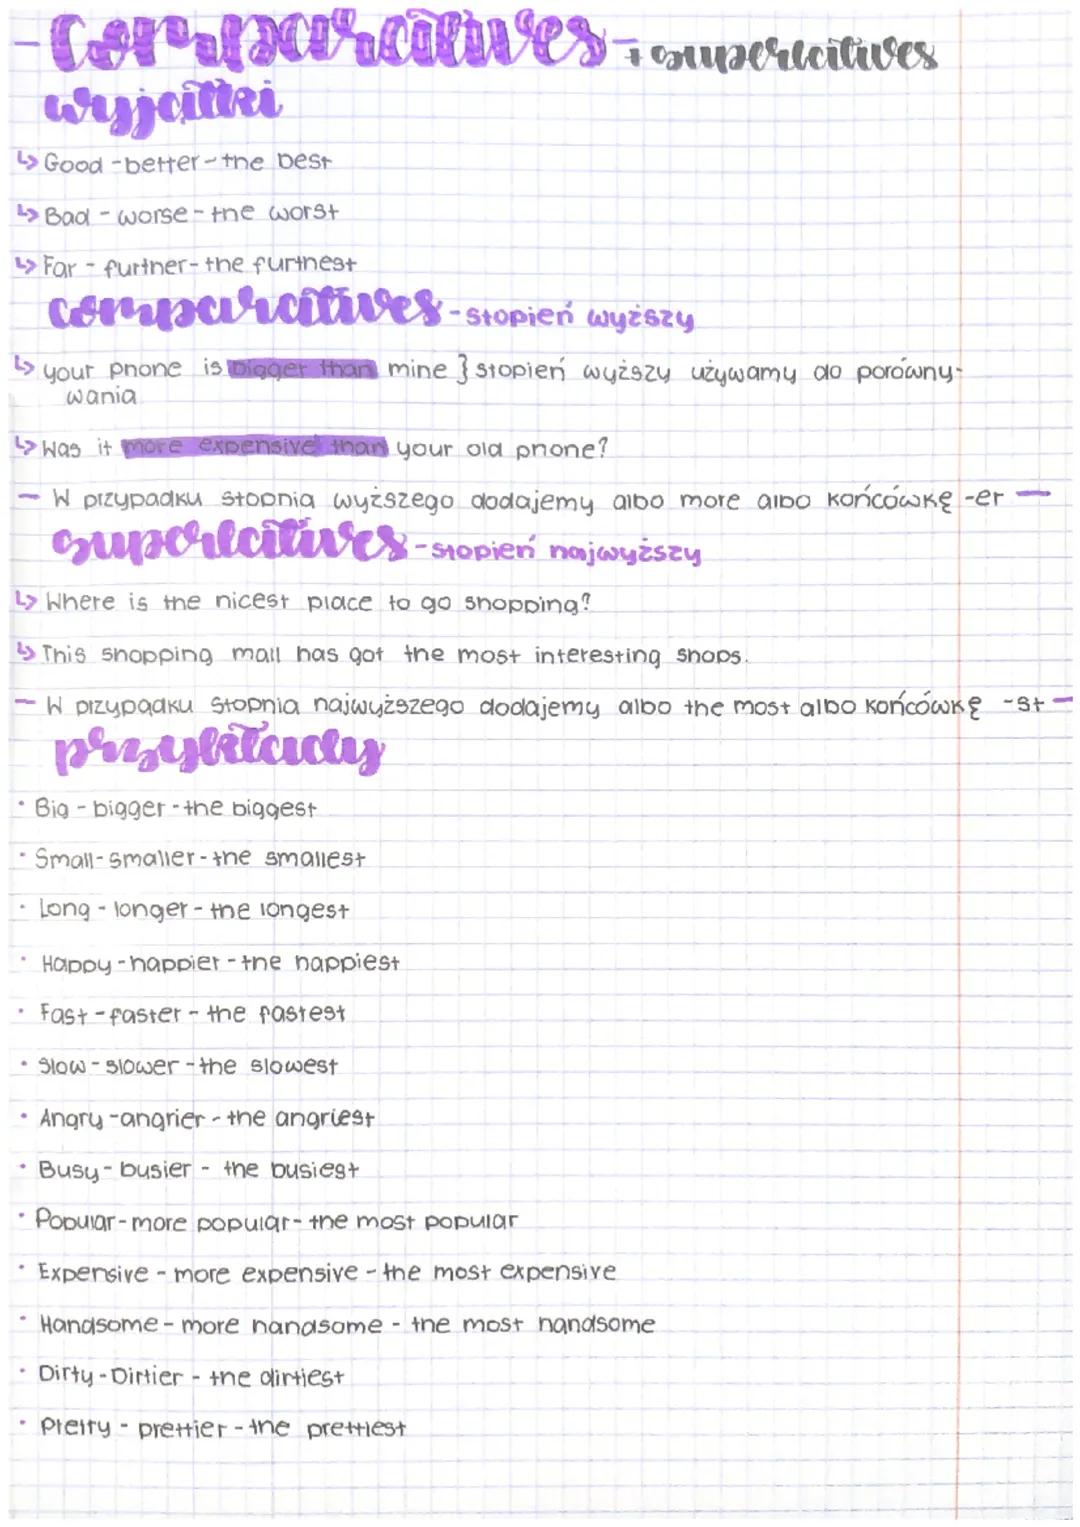 - Comparatives - + superlatives
wyjątki
↳ Good - better - the best
↳ Bad - worse - the worst
↳ Far - further - the furthest
comparatives - stopień wyższy
↳ your phone is bigger than mine } stopień wyższy używamy do porówny-
wania
↳ Was it more expensive than your old phone?
- W przypadku stopnia wyższego dodajemy albo more albo końcówkę -er -
superlatives - stopień najwyższy
↳ Where is the nicest place to go shopping?
↳ This shopping mall has got the most interesting shops.
- W przypadku stopnia najwyższego dodajemy albo the most albo końcówkę -st -
przykłady
• Big - bigger - the biggest
• Small - smaller - the smallest
• Long - longer - the longest
• Happy - happier - the happiest
• Fast - faster - the fastest
• Slow - slower - the slowest
• Angry - angrier - the angriest
• Busy - busier - the busiest
• Popular - more popular - the most popular
• Expensive - more expensive - the most expensive
• Handsome - more handsome - the most handsome
• Dirty - Dirtier - the dirtiest
• Pretty - prettier - the prettiest